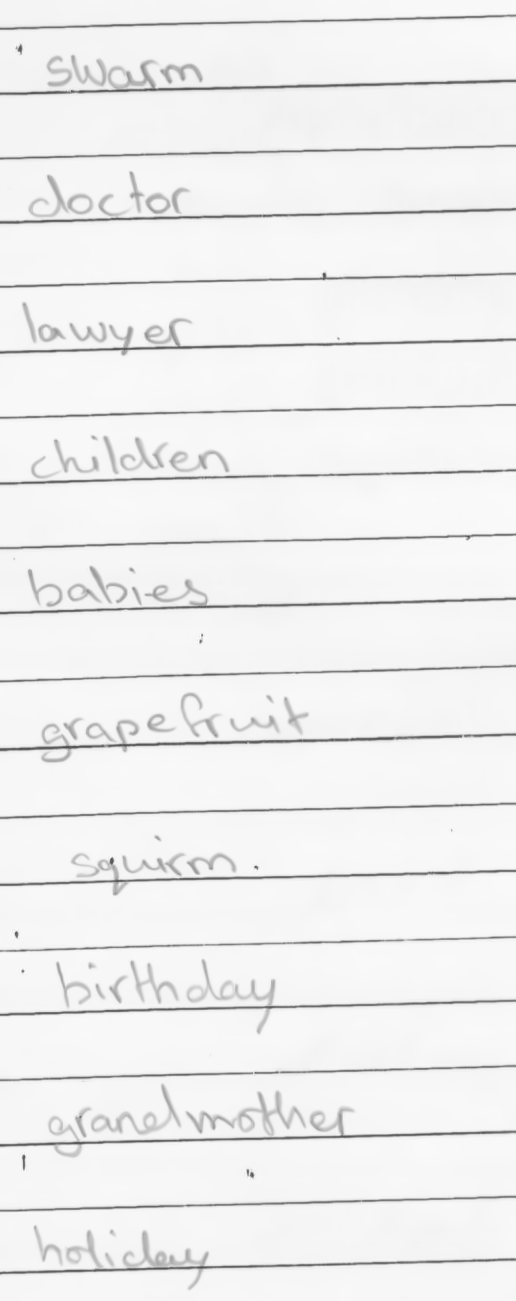 swarm
doctor
lawyer
children
babies
grapefruit
squirm.
birthday
grandmother
holiday